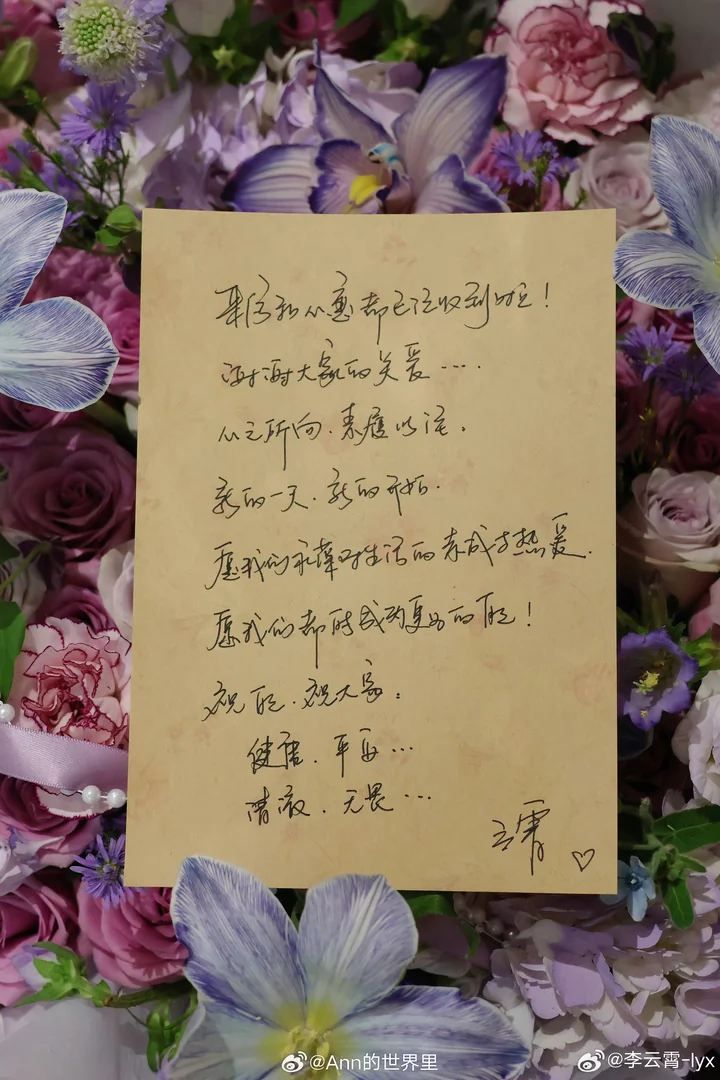 来信和心意都已经收到啦！
谢谢大家的关爱....
心之所向.素履以往。
新的一天.新的开始.
愿我们永葆对生活的赤诚与热爱.
愿我们都成为更好的自己！
祝自己.祝大家:
健康.平安...
清澈.无畏...
云霄♡
@Ann的世界里
@李云霄-lyx